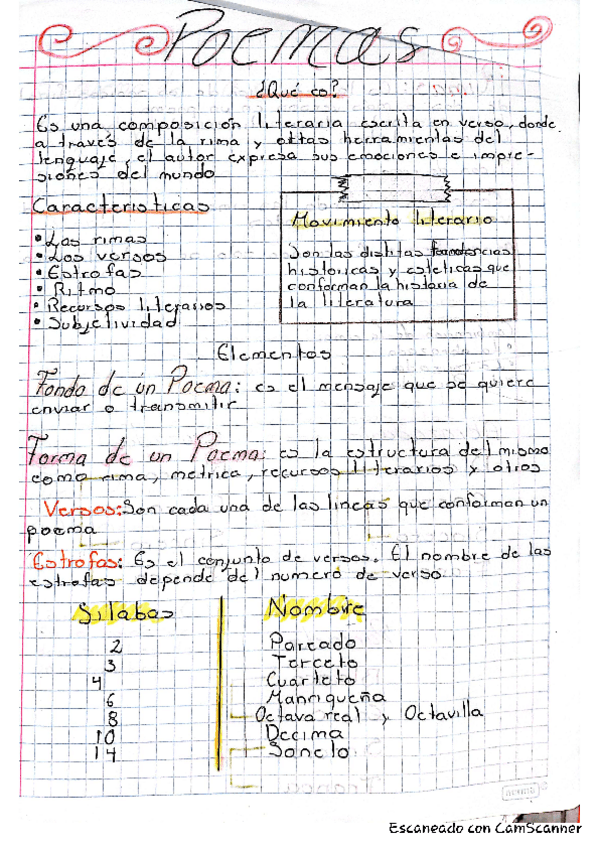 Poemas
¿Qué es?
Es una composición literaria escrita en verso, donde
a través de la rima y ottas herramientas del
lenguaje, el autor expresa sus emociones e impre-
siones del mundo
Caracteristicas
• Las rimas
• Los versos
• Estrofas
• Ritmo
• Recursos literarios
• Subjetividad
Movimiento literario
Son las distitas
históricas y esteticas que
conforman la historia de
la literatura
Elementos
Fondo de un Poema: es el mensaje que se quiere
enviar o transmitir
Forma de un Poema: es la estructura del mismo
como rima, metrica, recursos literarios y otros
Versos: Son cada una de las lineas que conforman un
poema
Estrofas: Es el conjunto de versos. El nombre de las
estrofas depende del numero de verso
Silabas Nombre
2 Pareado
3 Terceto
4 Cuarteto
6 Manriqueña
8 Octava real y Octavilla
10 Decima
14 Soneto
norma
Escaneado con CamScanner